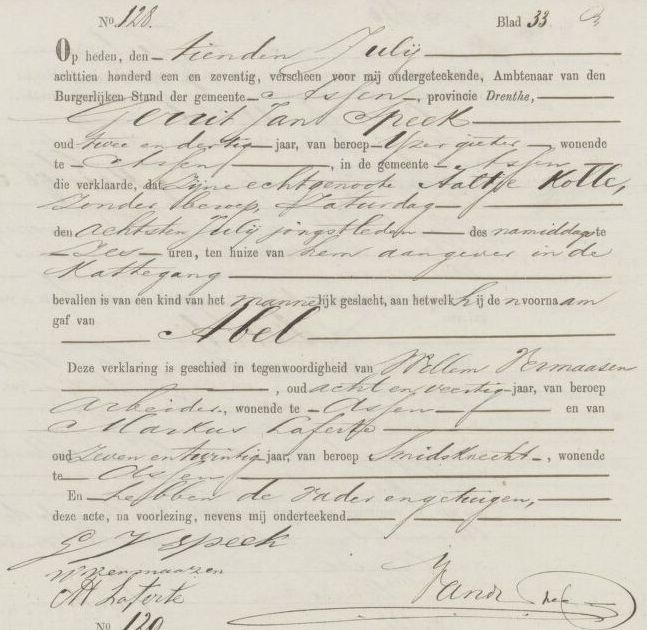 No. 128. Blad 33
Op heden, den tienden Julij
achttien honderd een en zeventig, verscheen voor mij ondergeteekende, Ambtenaar van den
Burgerlijken Stand der gemeente Assen, provincie Drenthe,
Gerrit Jan Speek
oud twee en dertig jaar, van beroep IJzergieter, wonende
te Assen, in de gemeente Assen
die verklaarde, dat Zijne echtgenoote Aaltje Kolle,
zonder beroep, Saturdag
den achtsten Julij jongstleden des namiddags te
Zes uren, ten huize van hem aangever in de
Kattegang
bevallen is van een kind van het mannelijk geslacht, aan hetwelk hij de n voornaam
gaf van
Abel
Deze verklaring is geschied in tegenwoordigheid van Willem Vermaasen
, oud acht en veertig jaar, van beroep
Arbeider, wonende te Assen en van
Markus Laferte
oud zeven en twintig jaar, van beroep Smidsknecht, wonende
te Assen
En hebben de vader en getuigen,
deze acte, na voorlezing, nevens mij onderteekend.
G J Speek
M Laferte
No 129